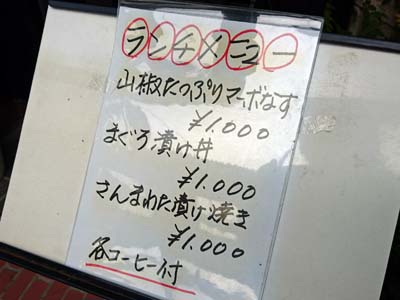 ランチメニュー
山椒たっぷりマーボなす
¥1.000
まぐろ漬け丼
¥1.000
さんまわた漬け焼き
¥1.000
各コーヒー付